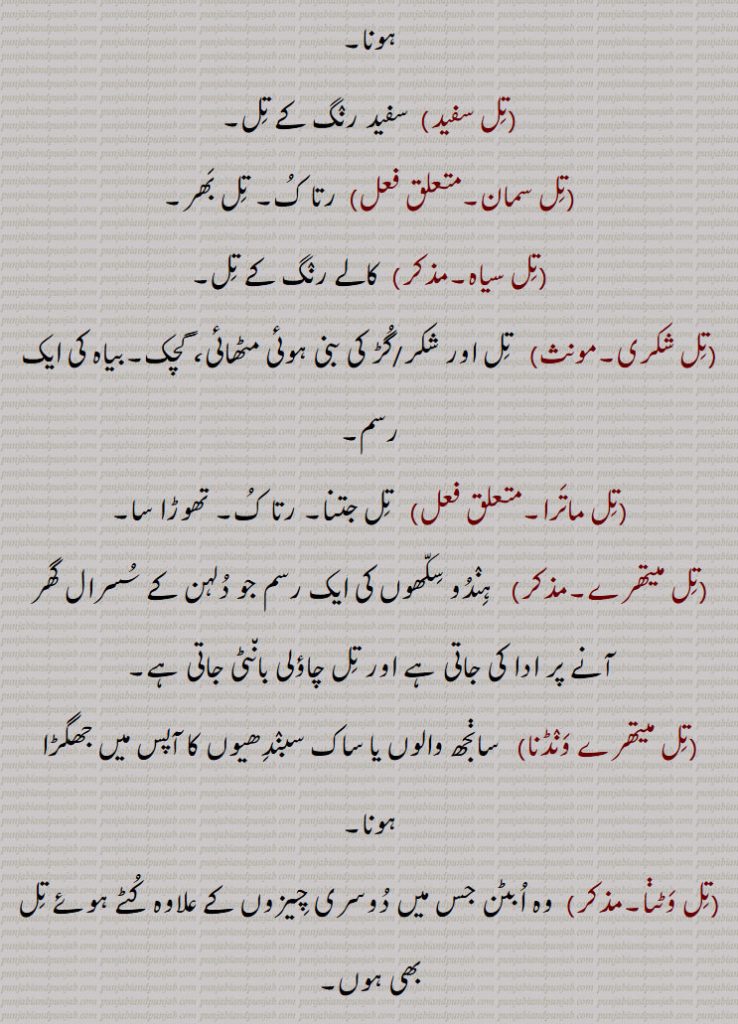 ہونا۔
(تِل سفید) سفید رنگ کے تِل۔
(تِل سمان۔متعلق فعل) رتا کُ۔ تِل بَھر۔
(تِل سیاہ۔مذکر) کالے رنگ کے تِل۔
(تِل شکری۔مونث) تِل اور شکر/گُڑ کی بنی ہوئی مٹھائی، گچک۔بیاہ کی ایک
رسم۔
(تِل ماترَا۔متعلق فعل) تِل جتنا۔ رتا کُ۔ تھوڑا سا۔
(تِل میتھرے۔مذکر) ہِنْدُو سِکّھوں کی ایک رسم جو دُلہن کے سُسرال گھر
آنے پر ادا کی جاتی ہے اور تِل چاؤلی بانْٹی جاتی ہے۔
(تِل میتھرے وَنْڈنا) سانْجھ والوں یا ساک سبنْدِھیوں کا آپس میں جھگڑا
ہونا۔
(تِل وَٹنْا۔مذکر) وہ اُبٹن جس میں دُوسری چِیزوں کے علاوہ کُٹے ہوئے تِل
بھی ہوں۔
punjabiandpunjab.com